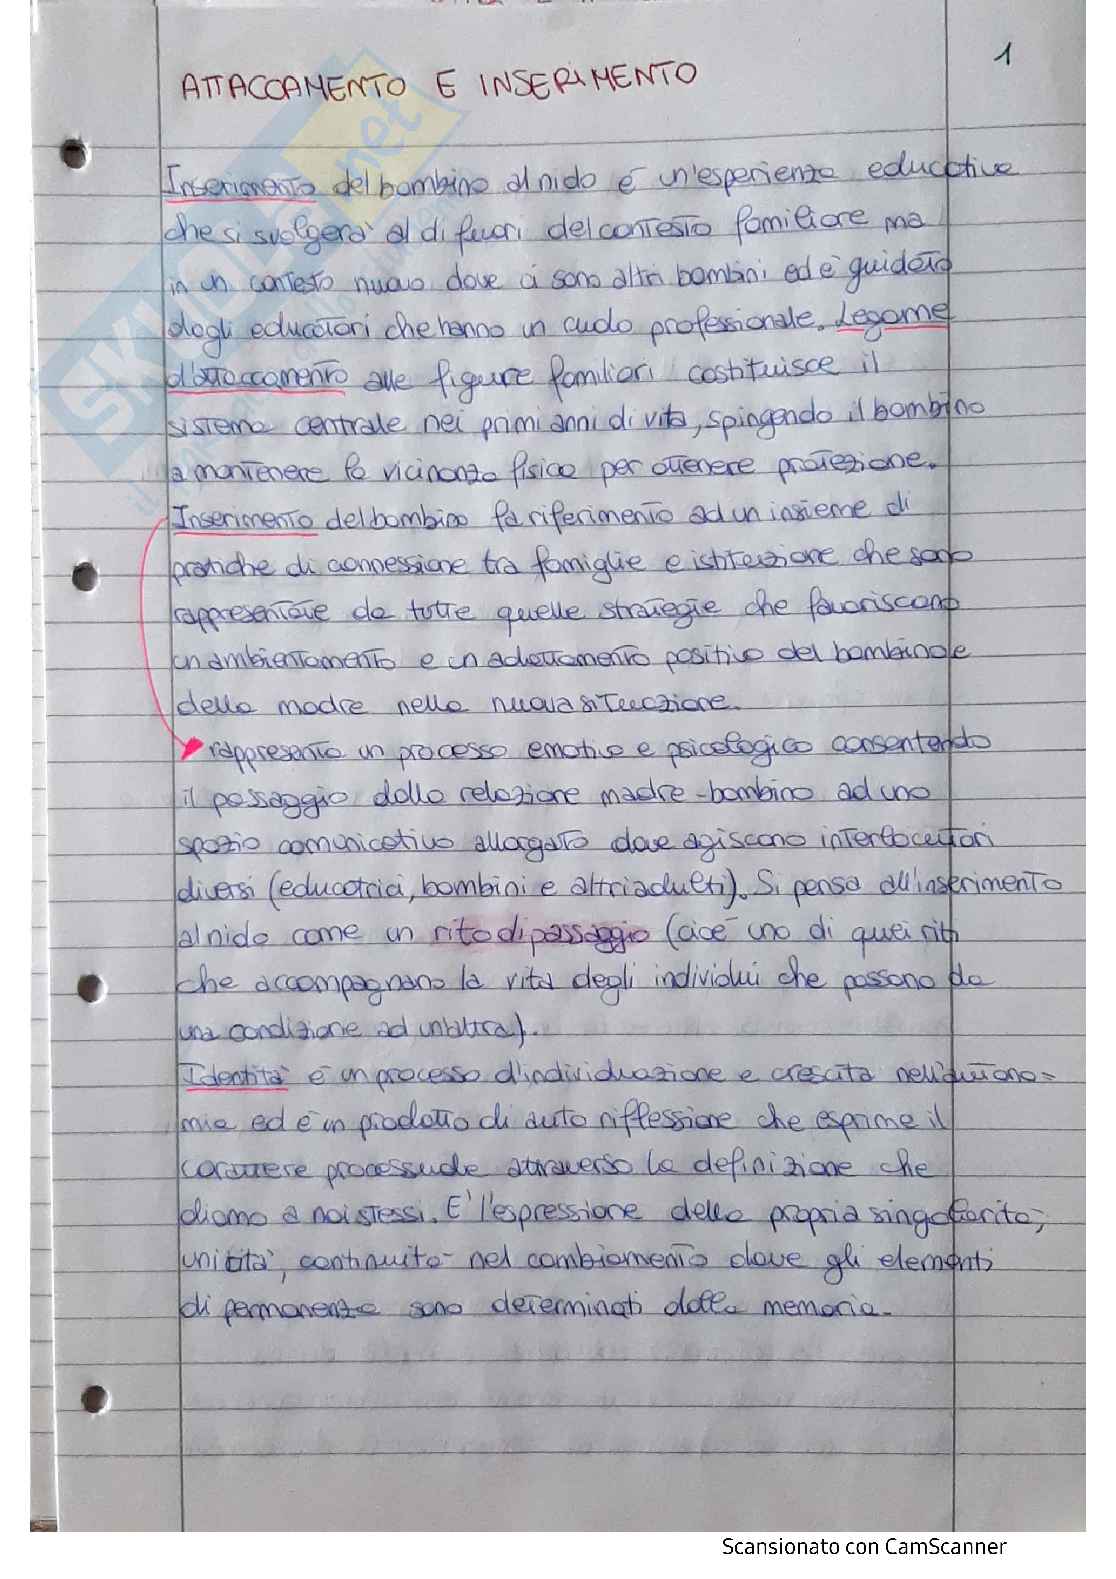 1
ATTACCAMENTO E INSERIMENTO
Inserimento del bambino al nido è un'esperienza educativa
che si svolgerà al di fuori del contesto familiare ma
in un contesto nuovo dove ci sono altri bambini ed è guidato
dagli educatori che hanno un ruolo professionale. Legame
d'attaccamento alle figure familiari costituisce il
sistema centrale nei primi anni di vita, spingendo il bambino
a mantenere la vicinanza fisica per ottenere protezione.
Inserimento del bambino fa riferimento ad un insieme di
pratiche di connessione tra famiglie e istituzione che sono
rappresentate da tutte quelle strategie che favoriscono
un ambientamento e un adattamento positivo del bambino e
della madre nella nuova situazione.
rappresenta un processo emotivo e psicologico consentendo
il passaggio dalla relazione madre-bambino ad uno
spazio comunicativo allargato dove agiscono interlocutori
diversi (educatrici, bambini e altri adulti). Si pensa all'inserimento
al nido come un rito di passaggio (cioè uno di quei riti
che accompagnano la vita degli individui che passano da
una condizione ad un'altra).
Identità è un processo d'individuazione e crescita nell'autono=
mia ed è un prodotto di auto riflessione che esprime il
carattere processuale attraverso la definizione che
diamo a noi stessi. E' l'espressione della propria singolarità,
unicità, continuità nel cambiamento dove gli elementi
di permanenza sono determinati dalla memoria.
SKUOLA.net
Scansionato con CamScanner